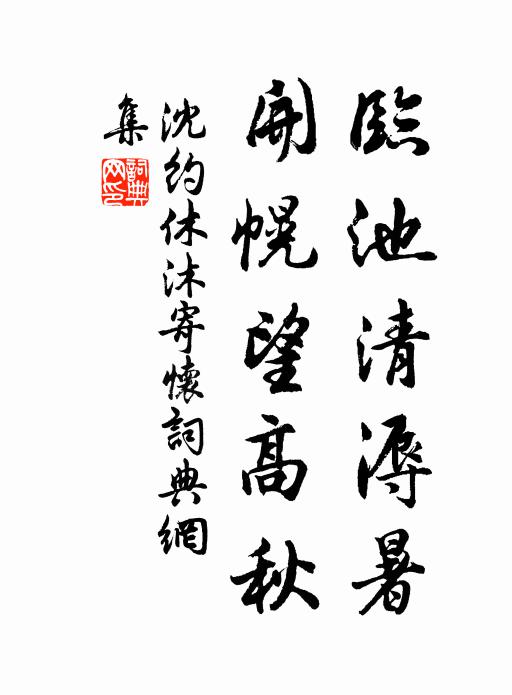 臨池清溽暑
開幌望高秋
沈約休沐寄懷詞典網
集
詞典
网印